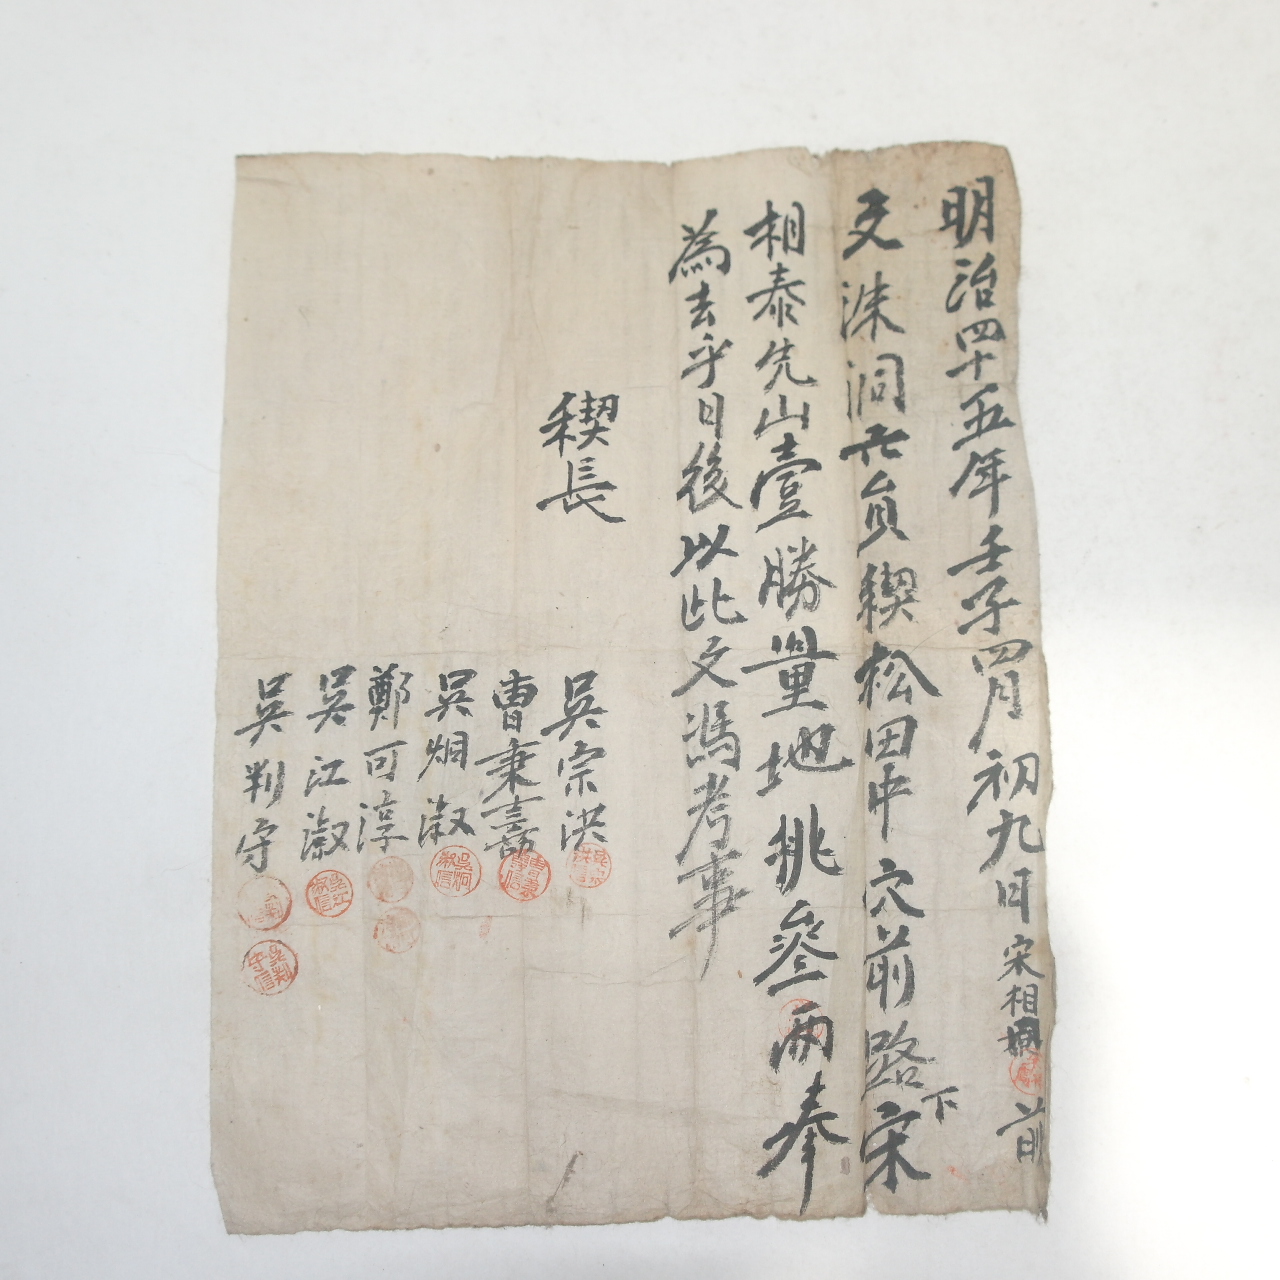 明治四十五年壬子四月初九日宋相興前
文洙洞六員稧松田中穴前路下宋
相泰先山壹勝量地桃叄兩奉
為去乎日後以此文馮考事
稧長
吳宗洪
曺秉嘉
吳炯淑
鄭可淳
吳江淑
吳判守